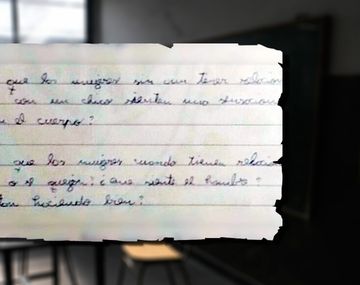 que las mujeres sin aun tener relacion
con un chico sienten una sensacion
n el cuerpo?
que las mujeres cuando tienen relacio
o el ? ¿que siente el hombre?
ton haciendo bien?